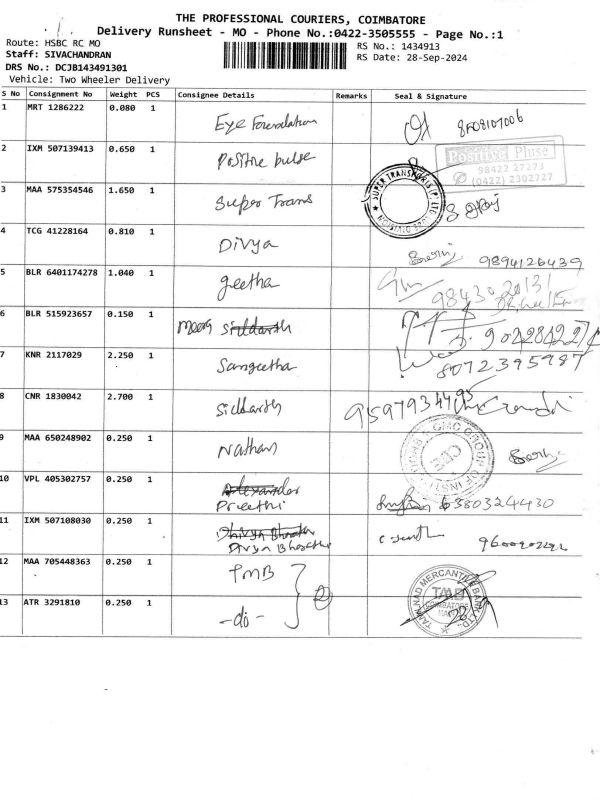 THE PROFESSIONAL COURIERS, COIMBATORE
Delivery Runsheet - MO - Phone No.:0422-3505555 - Page No.:1
Route: HSBC RC MO
RS No.: 1434913
Staff: SIVACHANDRAN
RS Date: 28-Sep-2024
DRS No.: DCJB143491301
Vehicle: Two Wheeler Delivery
S No Consignment No Weight PCS Consignee Details Remarks Seal & Signature
1 MRT 1286222 0.080 1 Eye Foundation
2 IXM 507139413 0.650 1 Positive pulse
Positive Pluse
98422 27273
(0422) 2302727
3 MAA 575354546 1.650 1 Super Trans
4 TCG 41228164 0.810 1 Divya 9894126439
5 BLR 6401174278 1.040 1 geetha
6 BLR 515923657 0.150 1 siddarth
7 KNR 2117029 2.250 1 Sangeetha 8072395987
8 CNR 1830042 2.700 1 siddarth
9 MAA 650248902 0.250 1 Nathan
10 VPL 405302757 0.250 1 Alexander
Preethi 6380324430
11 IXM 507108030 0.250 1
Divya Bharathi
12 MAA 705448363 0.250 1 TMB
TAMILNAD MERCANTILE BANK LTD.
TMB
COIMBATORE
13 ATR 3291810 0.250 1 -do-